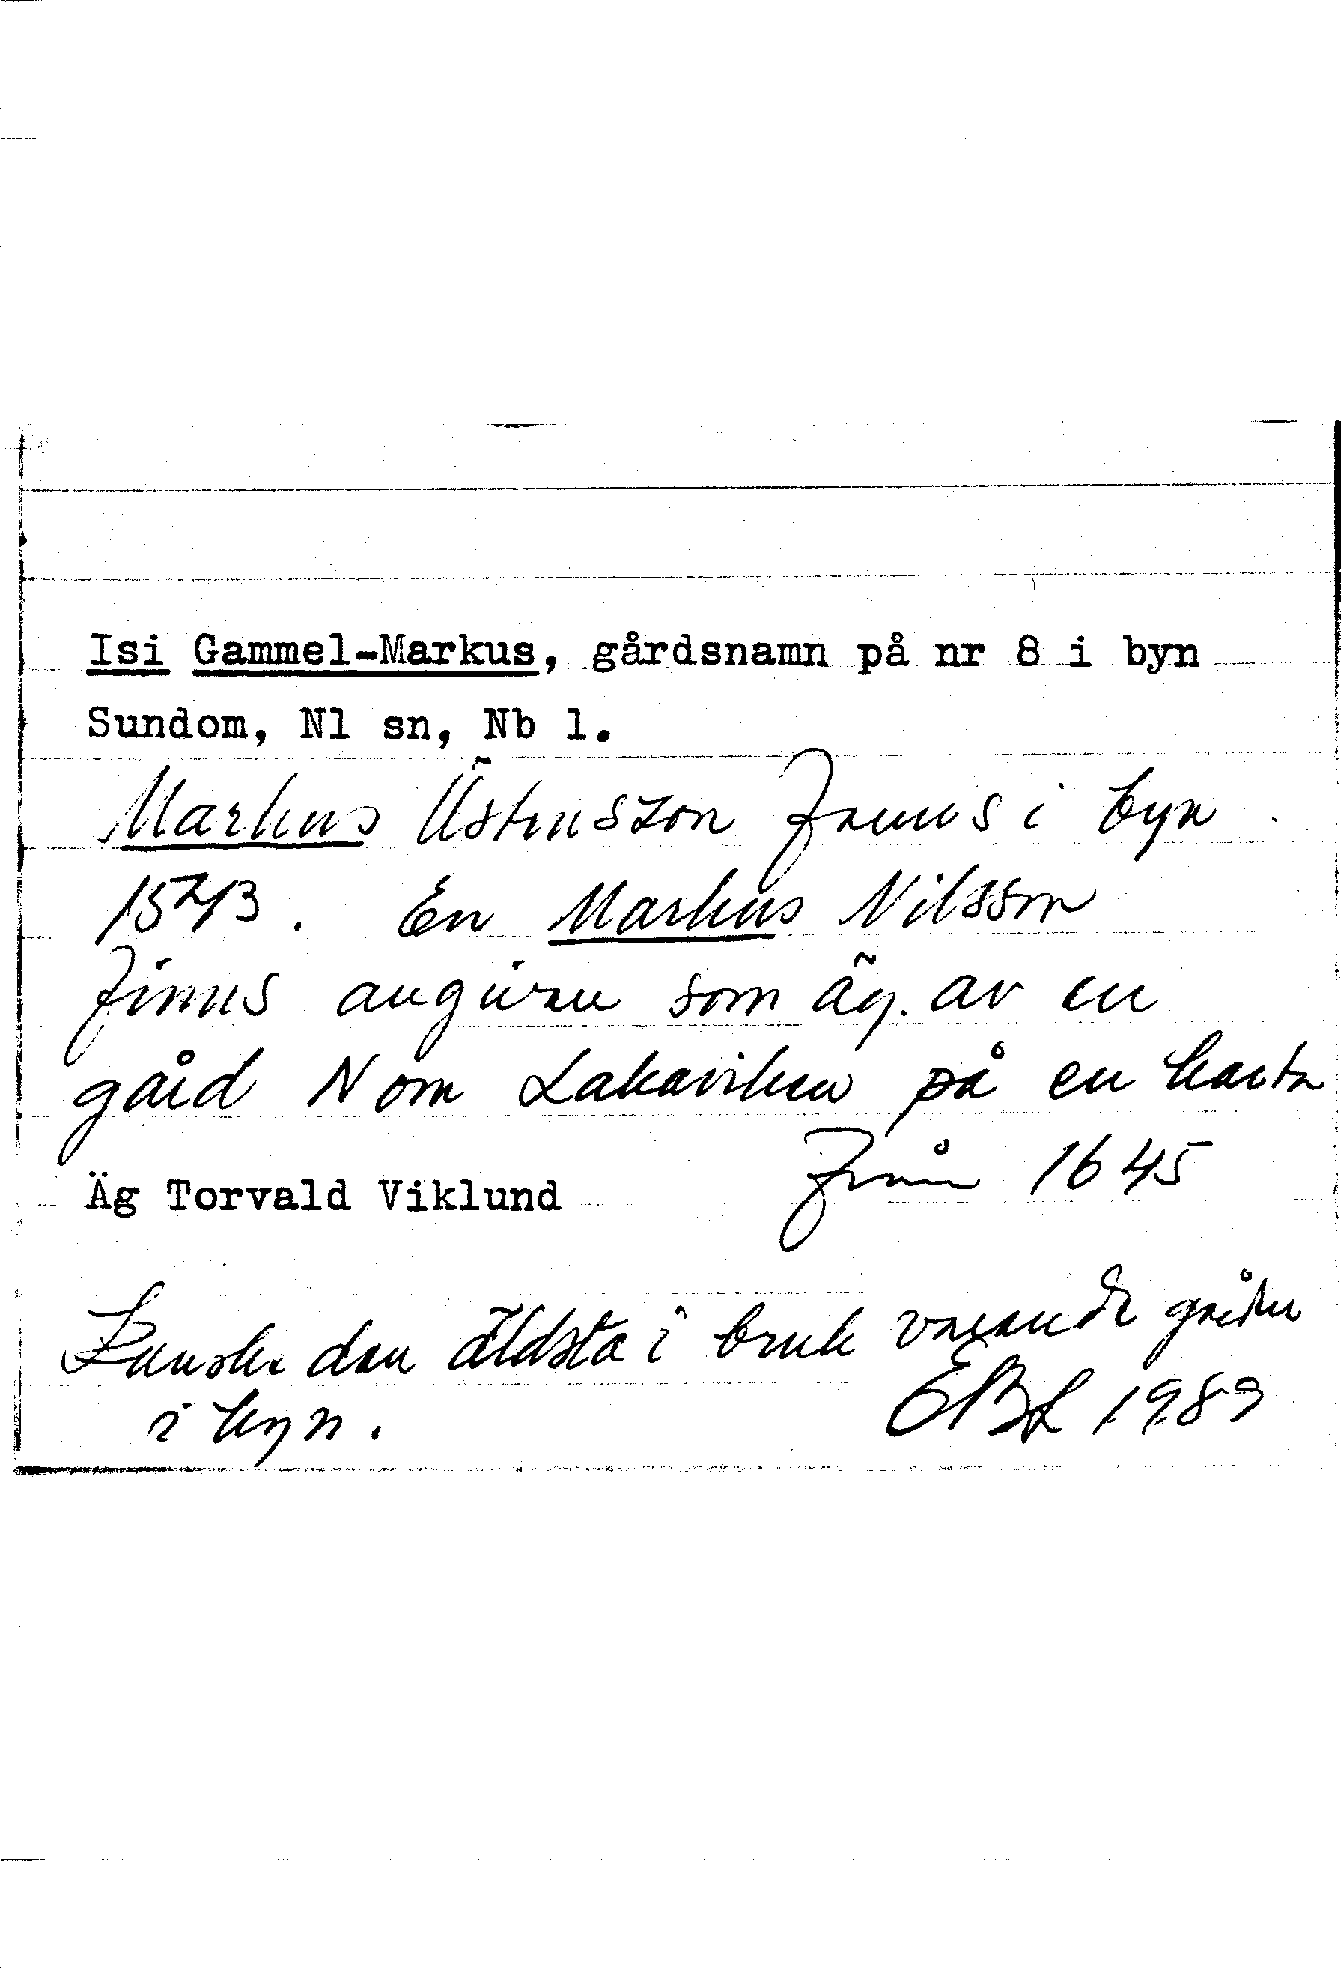 Isi Gammel-Markus, gårdsnamn på nr 8 i byn
Sundom, Nl sn, Nb l.
Markus Östensson fanns i byn
1543. En Markus Nilsson
finns angiven som äg. av en
gård N om Lakaviken på en karta
från 1645
Äg Torvald Viklund
Kanske den äldsta i bruk varande gården
i byn. EBL 1989